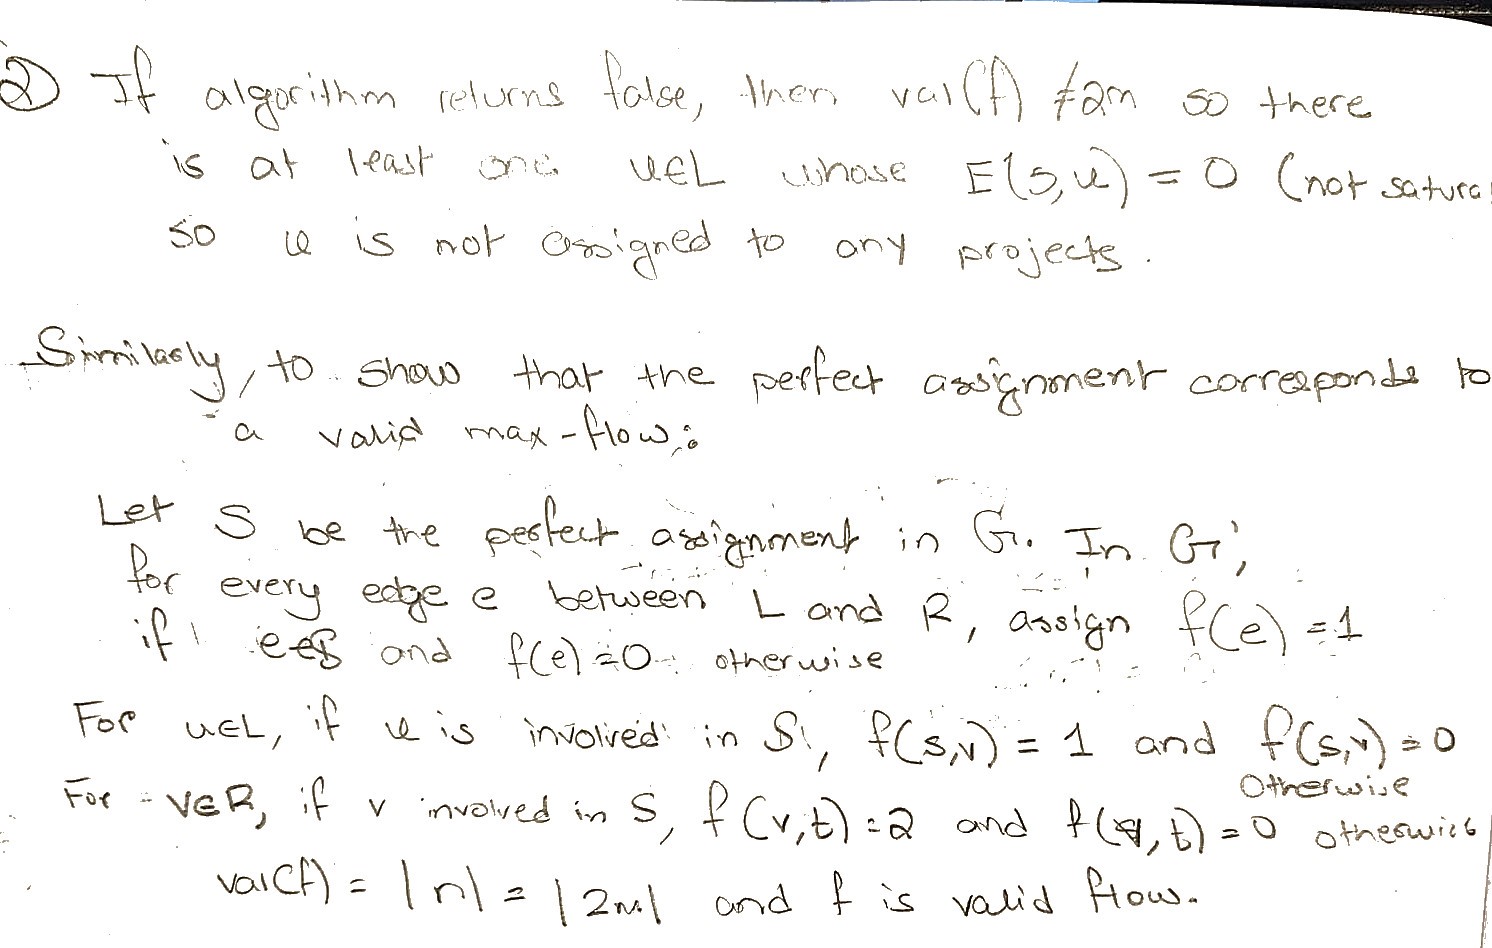 2) If algorithm returns false, then val(f) ≠ 2m so there
is at least one u∈L whose E(s,u) = 0 (not satura
so u is not assigned to any projects.
Similarly, to show that the perfect assignment corresponds to
a valid max-flow:
Let S be the perfect assignment in G. In G',
for every edge e between L and R, assign f(e) = 1
if e∈S and f(e) = 0 otherwise
For u∈L, if u is involved in S, f(s,v) = 1 and f(s,v) = 0
otherwise
For v∈R, if v involved in S, f(v,t) = 2 and f( ,t) = 0 otherwise
val(f) = |n| = |2m| and f is valid flow.